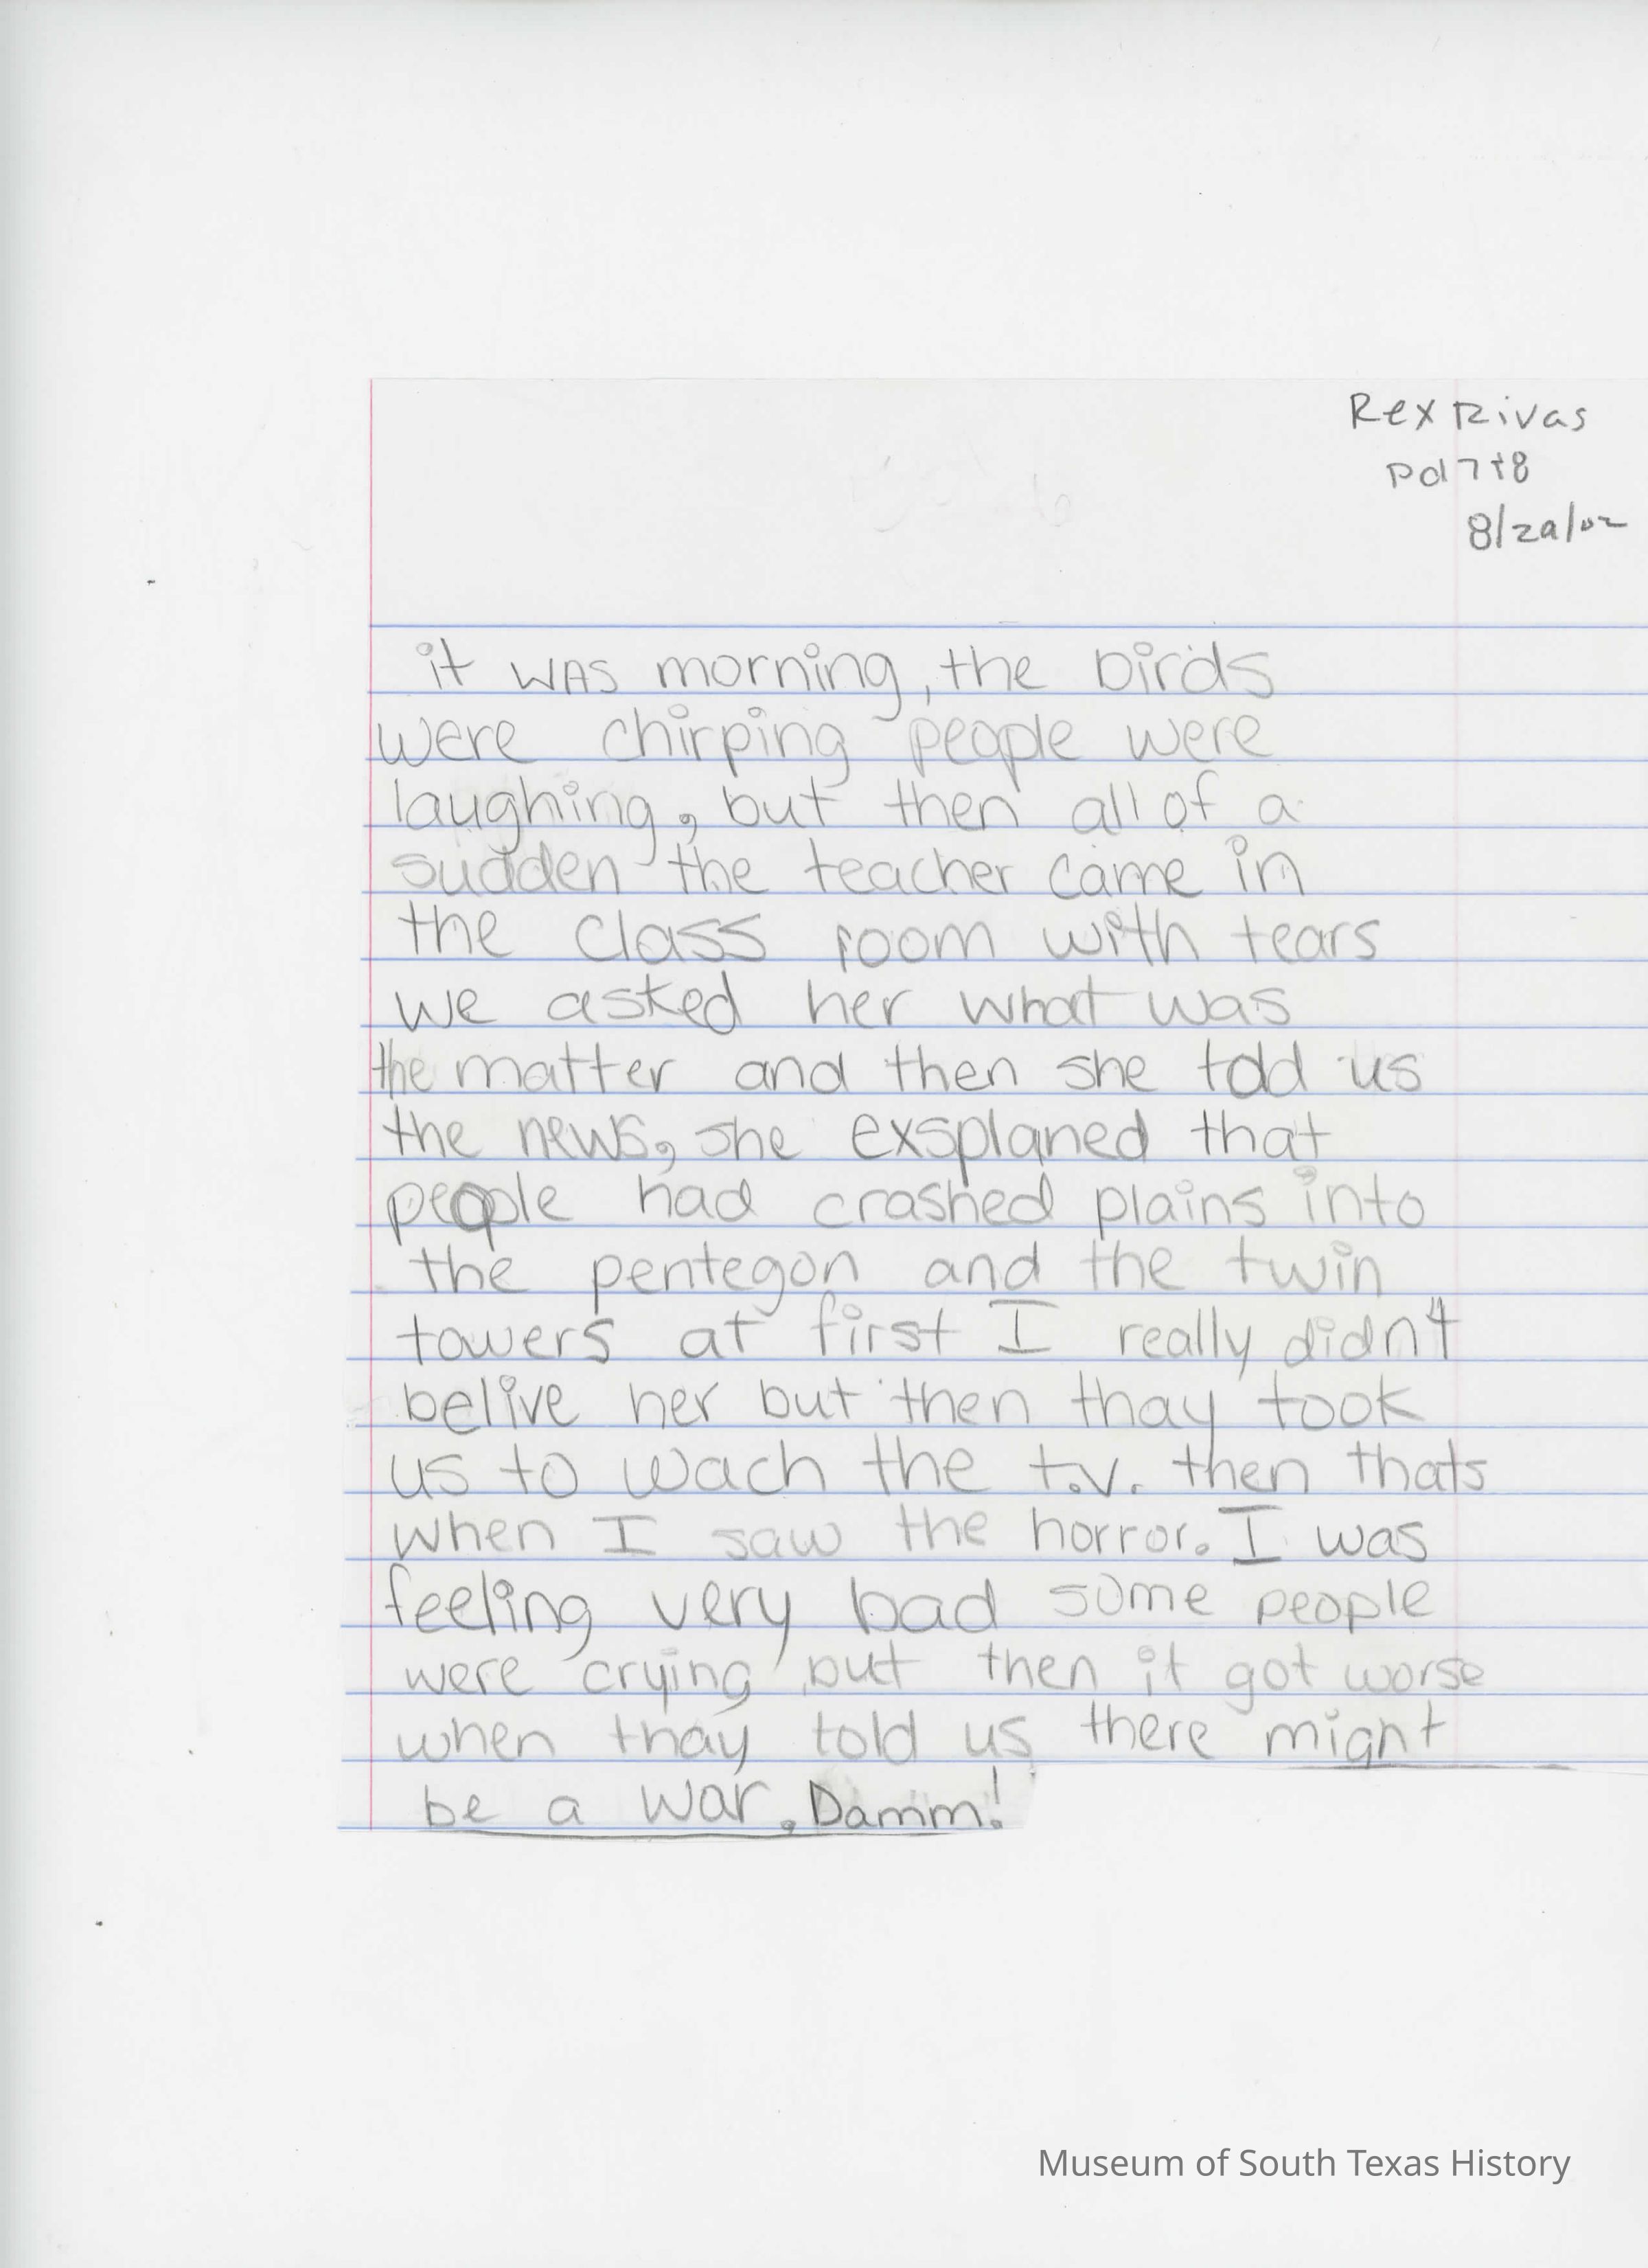 Rex Rivas
Pd 7+8
8/29/02
it was morning, the birds
were chirping people were
laughing, but then all of a
sudden the teacher came in
the class room with tears
we asked her what was
the matter and then she told us
the news, she exsplaned that
people had crashed plains into
the pentegon and the twin
towers at first I really didn't
belive her but then thay took
us to wach the t.v. then thats
when I saw the horror. I was
feeling very bad some people
were crying but then it got worse
when thay told us there might
be a war. Damm!
Museum of South Texas History